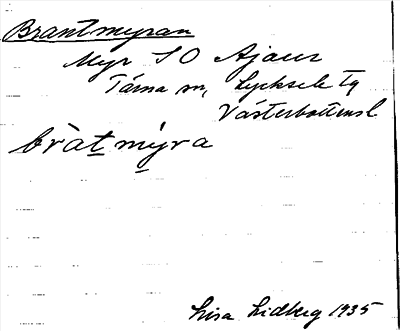 Brantmyran
Myr SO Ajaur
Tärna sn, Lycksele Tg
Västerbottensl
bràt mýra
Lisa Lidberg 1935